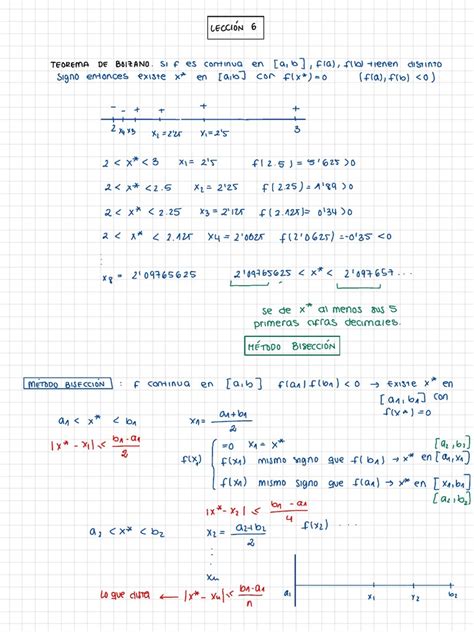 LECCIÓN 6
TEOREMA DE BOLZANO. Si f es continua en [a,b], f(a), f(b) tienen distinto
signo entonces existe x* en [a,b] con f(x*)=0 (f(a), f(b) <0)
- - + + + +
2 x4 x3 x2=2'25 x1=2'5 3
2 < x* < 3 x1= 2'5 f(2.5)= 5'625 >0
2 < x* < 2.5 x2 = 2'25 f(2.25)= 1'89 >0
2 < x* < 2.25 x3 = 2'125 f(2.125)= 0'34 >0
2 < x* < 2.125 x4 = 2'0625 f(2'0625)=-0'35 <0
x8 = 2'09765625 2'09765625 < x* < 2'097657...
se de x* al menos sus 5
primeras cifras decimales.
MÉTODO BISECCIÓN
MÉTODO BISECCIÓN : f continua en [a,b] f(a1) f(b1) < 0 → existe x* en
[a1,b1] con
f(x*)=0
a1 < x* < b1 x1= a1+b1/2
|x*-x1| ≤ b1-a1/2
f(x1) { =0 x1 = x*
[a2,b2]
f(x1) mismo signo que f(b1) → x* en [a1,x1]
f(x1) mismo signo que f(a1) → x* en [x1,b1]
[a2,b2]
|x*-x2| ≤ b1-a1/4
a2 < x* < b2 x2 = a2+b2/2 f(x2) ...
xn
lo que dista → |x*-xn| ≤ b1-a1/n
a1 x1 x2 b2